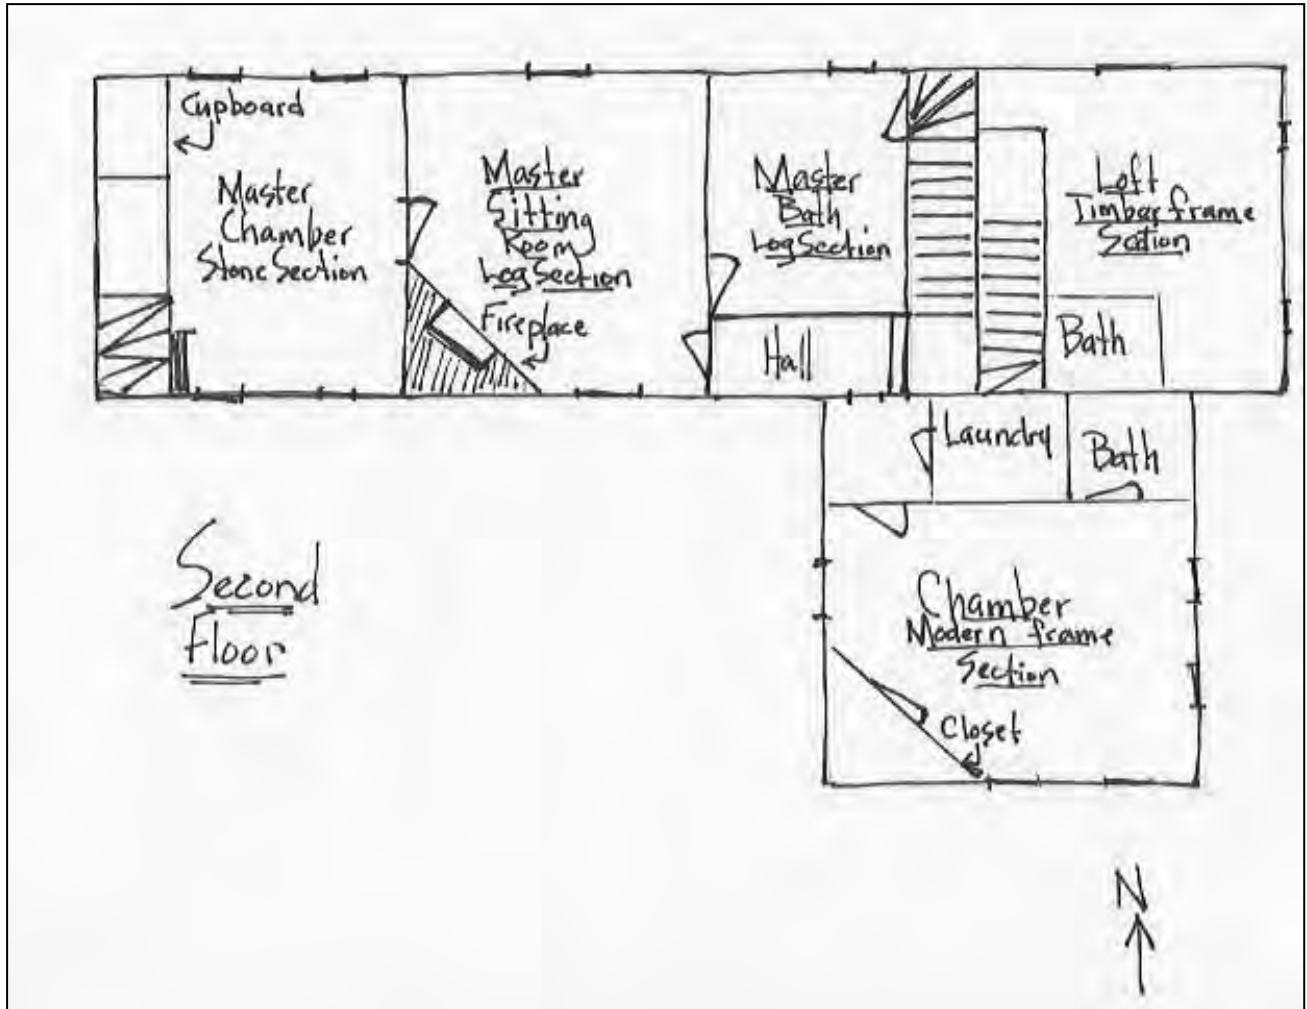 Cupboard
Master
Chamber
Stone Section
Master
Sitting
Room
Log Section
Fireplace
Master
Bath
Log Section
Hall
Loft
Timber frame
Section
Bath
Laundry
Bath
Chamber
Modern frame
Section
Closet
Second
Floor
N